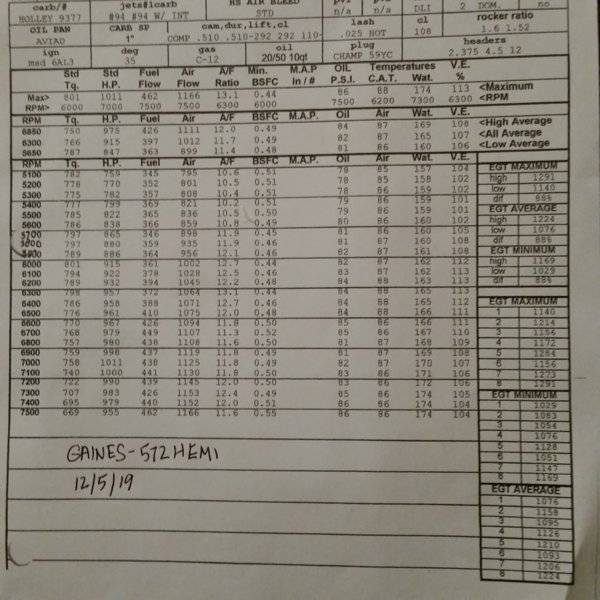 carb/# jets#1carb HS AIR BLEED
HOLLEY 9377 #94 #94 W/ INT STD n/a n/a DLI 2 DOM. no
OIL PAN CARB SP cam,dur,lift,cl lash cl rocker ratio
AVIAD 1" COMP .510 .510-292 292 110- .025 HOT 108 1.6 1.52
ign deg gas oil plug headers
msd 6AL3 35 C-12 20/50 10qt CHAMP 59YC 2.375 4.5 12
Std Std Fuel Air A/F Min. M.A.P OIL Temperatures V.E.
Tq. H.P. Flow Flow Ratio BSFC in / # P.S.I. C.A.T. Wat. %
Max> 801 1011 462 1166 13.1 0.44 86 88 174 113 <Maximum
RPM> 6000 7000 7500 7500 6300 6000 7500 6200 7300 6300 <RPM
RPM Tq. H.P. Fuel Air A/F BSFC M.A.P. Oil Air Wat. V.E.
6850 750 975 426 1111 12.0 0.49 84 87 169 108 <High Average
6300 766 915 397 1012 11.7 0.49 82 87 165 107 <All Average
5650 787 847 363 899 11.4 0.48 81 86 160 106 <Low Average
RPM Tq. H.P. Fuel Air A/F BSFC M.A.P. Oil Air Wat. V.E.
5100 782 759 345 795 10.6 0.51 78 85 157 104
5200 778 770 352 801 10.5 0.51 78 85 158 102
5300 775 782 357 808 10.4 0.51 78 86 159 102
5400 777 799 369 821 10.2 0.51 79 86 159 101
5500 785 822 365 836 10.5 0.50 79 86 159 101
5600 786 838 366 859 10.8 0.49 80 86 160 102
5700 797 865 346 898 11.9 0.45 81 86 160 105
5800 797 880 359 935 11.9 0.46 81 87 160 108
5900 789 886 364 956 12.1 0.46 82 87 161 108
6000 801 915 361 1002 12.7 0.44 82 87 162 112
6100 794 922 378 1028 12.5 0.46 83 87 162 113
6200 789 932 394 1045 12.2 0.48 84 88 163 113
6300 798 957 372 1064 13.1 0.44 84 88 165 113
6400 786 958 388 1071 12.7 0.46 84 88 165 112
6500 776 961 410 1075 12.0 0.48 84 88 166 111
6600 770 967 426 1094 11.8 0.50 85 86 166 111
6700 768 979 449 1107 11.3 0.52 85 86 167 110
6800 757 980 438 1108 11.6 0.50 81 87 168 109
6900 759 998 437 1119 11.8 0.49 81 87 169 108
7000 758 1011 438 1125 11.8 0.49 82 87 170 107
7100 740 1000 441 1130 11.8 0.50 83 86 171 106
7200 722 990 439 1145 12.0 0.50 83 86 172 106
7300 707 983 426 1153 12.4 0.49 85 86 174 105
7400 695 979 440 1152 12.0 0.51 86 86 174 104
7500 669 955 462 1166 11.6 0.55 86 86 174 104
EGT MAXIMUM
high 1291
low 1140
dif 88%
EGT AVERAGE
high 1224
low 1076
dif 88%
EGT MINIMUM
high 1169
low 1029
dif 88%
EGT MAXIMUM
1 1140
2 1214
3 1156
4 1172
5 1284
6 1156
7 1273
8 1291
EGT MINIMUM
1 1029
2 1083
3 1054
4 1076
5 1128
6 1051
7 1147
8 1169
EGT AVERAGE
1 1076
2 1158
3 1095
4 1126
5 1210
6 1093
7 1206
8 1224
GAINES-572HEMI
12/5/19